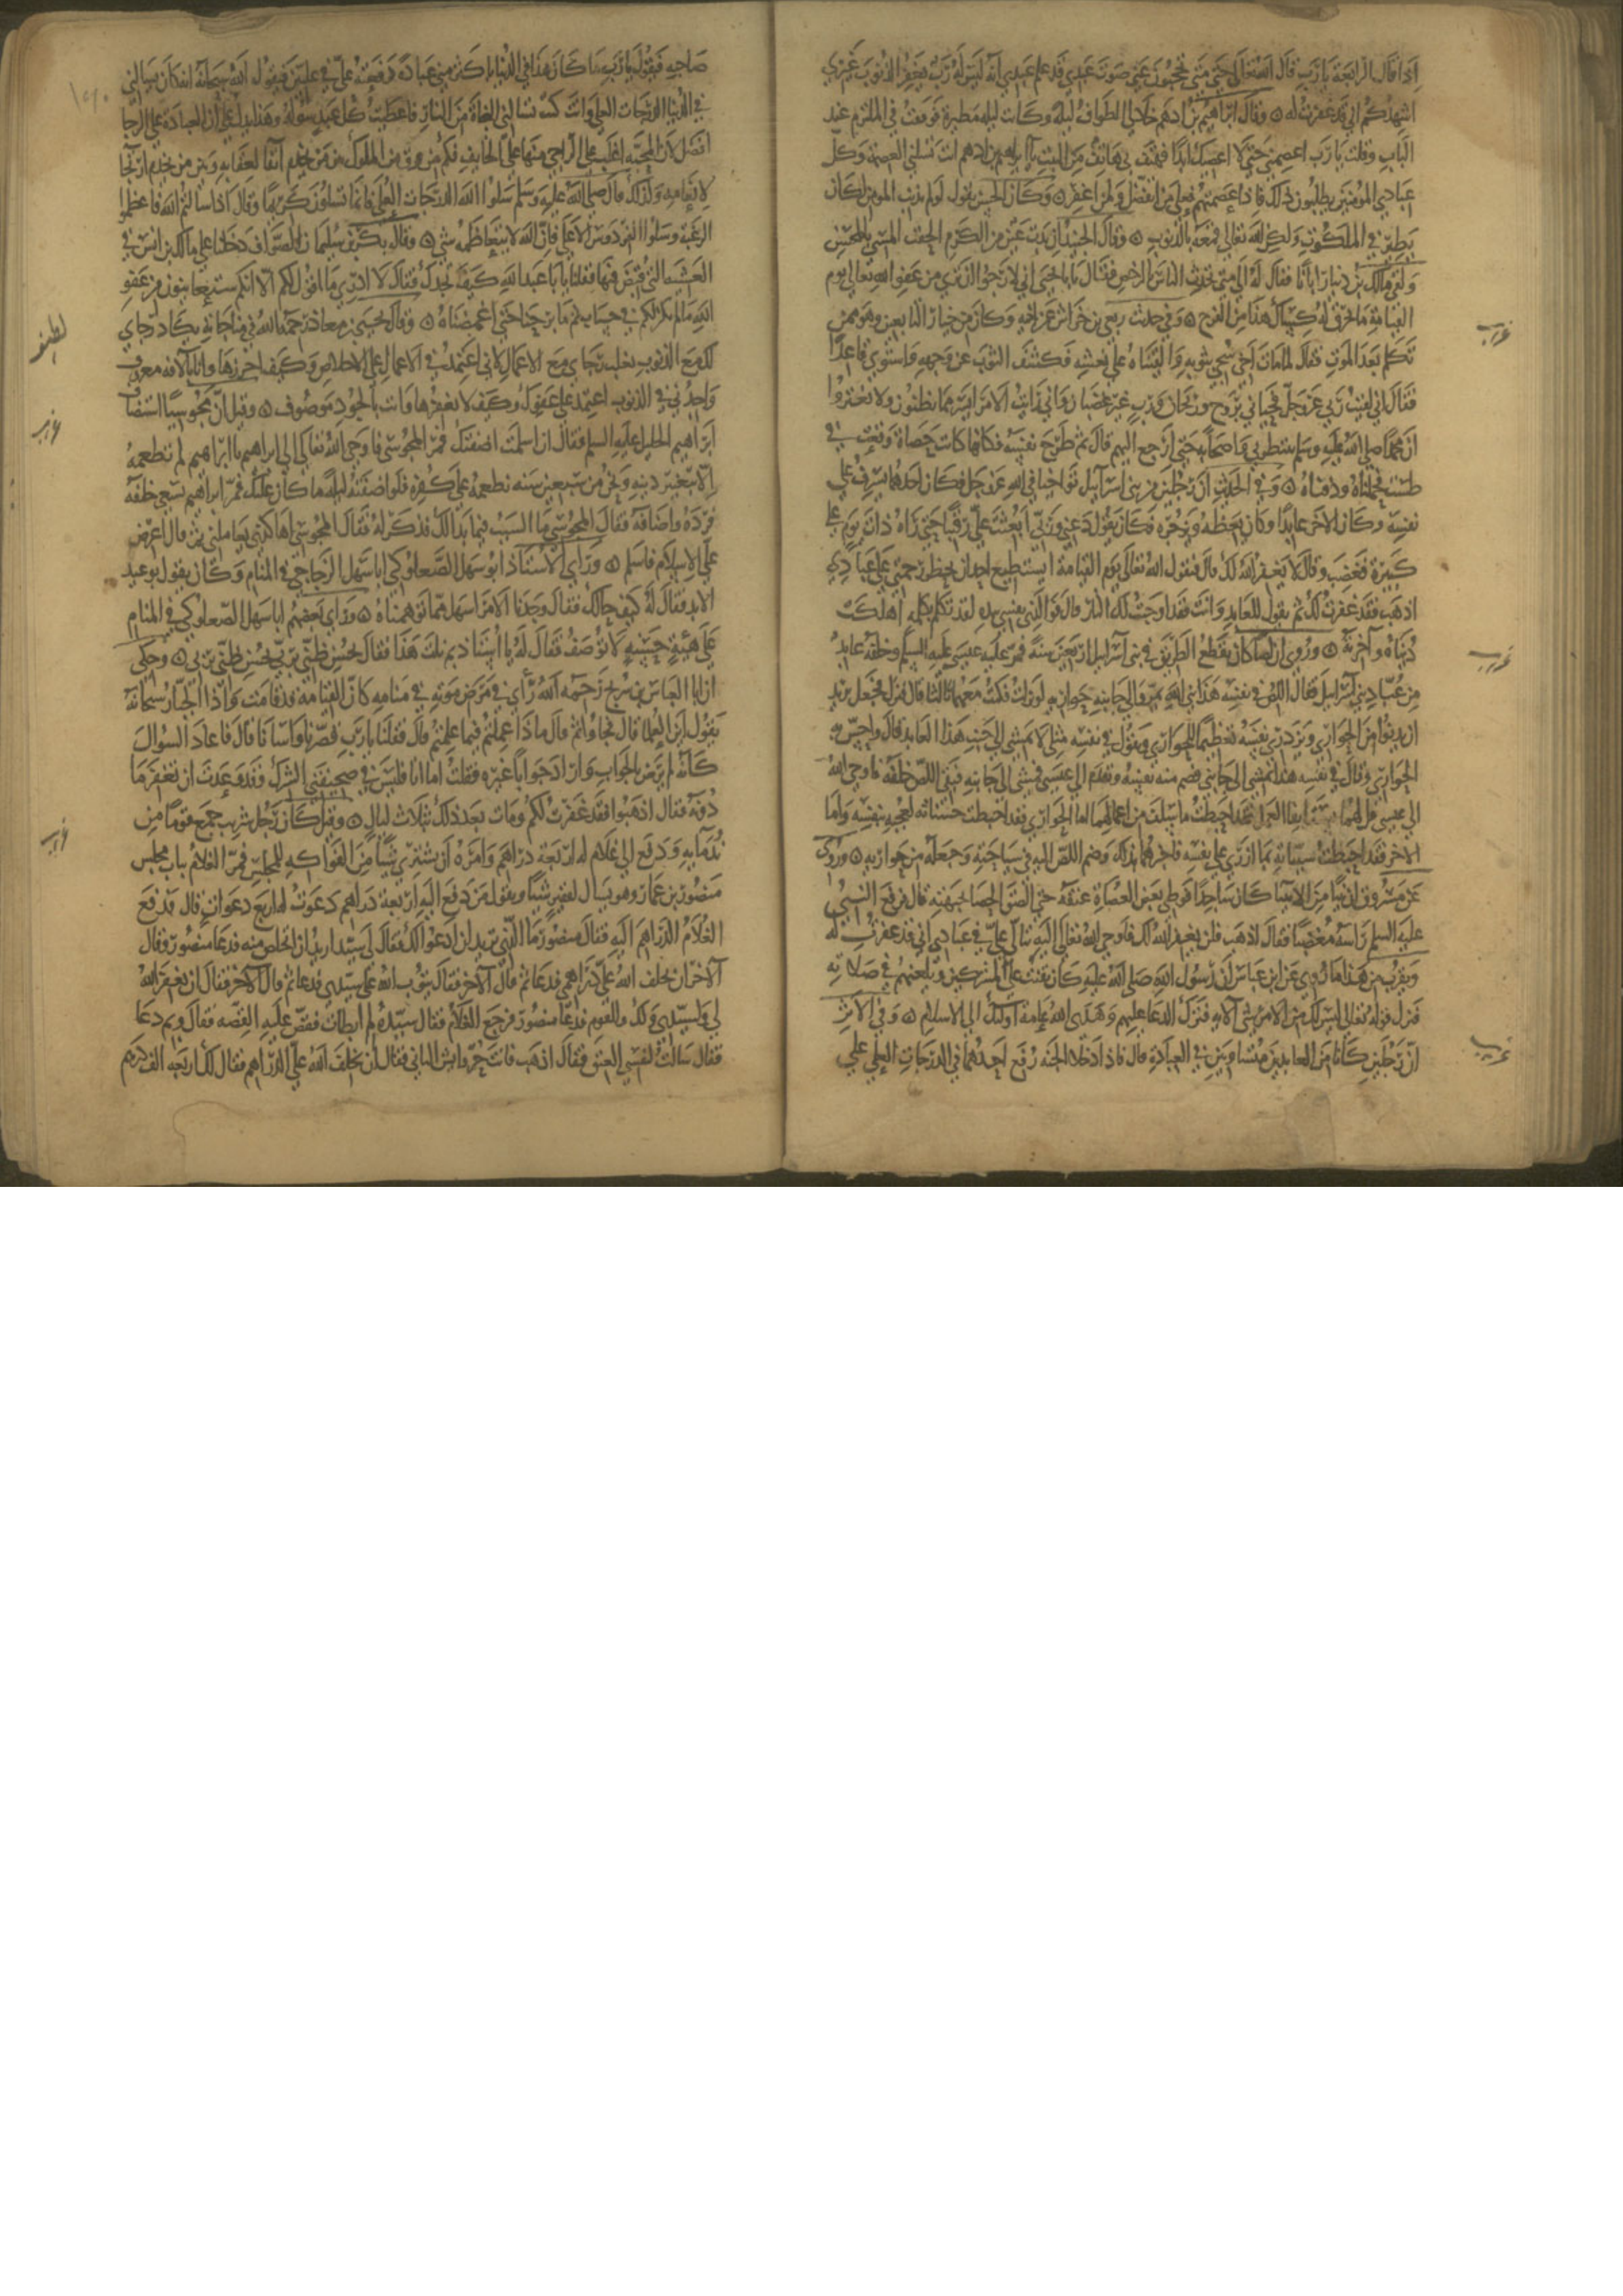 اذا قال الرابعة يا رب قال الله تعالى حتى متى تحجبون عني صوت عبدي قد علم عبدي انه ليس له رب يغفر الذنوب غيري
اشهدكم اني قد غفرت له ۞ وقال ابراهيم بن ادهم خلا لي الطواف ليلة وكانت ليلة مطيرة فوقفت في الملتزم عند
الباب وقلت يا رب اعصمني حتى لا اعصيك ابدا فهتف بي هاتف من البيت يا ابراهيم بن ادهم انت تسلني العصمة وكل
عبادي المؤمنين يطلبون ذلك فاذا عصمتهم فعلى من اتفضل ولمن اغفر ۞ وكان الحسن يقول لو لم يذنب المؤمن لكان
يطير في الملكوت ولكن الله تعالى قمعه بالذنوب ۞ وقال الجنيد ان بدت عين من الكرم الحقت المسي بالمحسن
ولقي مالك بن دينار ابانا فقال له الى متى تحدث الناس بالرخص فقال يا ابا يحيى اني لارجوا ان ترى من عفو الله تعالى يوم
القيامة ما تخرق له كساك هذا من الفرح ۞ وفي حديث ربعي بن خراش عن اخيه وكان من خيار التابعين وهو ممن
تكلم بعد الموت فقال لما مات اخي سجي بثوبه والقيناه على نعشه فكشف الثوب عن وجهه واستوى قاعدا
فقال اني لقيت ربي عز وجل فحياني بروح وريحان ورب غير غضبان واني رايت الامر ايسر مما تظنون ولا تغتروا
ان محمدا صلى الله عليه وسلم ينتظرني واصحابه حتى ارجع اليهم قال ثم طرح نفسه فكانها كانت حصاة وقعت في
طست فحملناه ودفناه ۞ وفي الحديث ان رجلين من بني اسرائيل تواخيا في الله عز وجل فكان احدهما يسرف على
نفسه وكان الاخر عابدا وكان يعظه ويزجره فكان يقول دعني وربي ابعثت علي رقيبا حتى راه ذات يوم على
كبيرة فغضب وقال لا يغفر الله لك قال فيقول الله تعالى يوم القيامة ايستطيع احد ان يحظر رحمتي على عبادي
اذهب فقد غفرت لك ثم يقول للعابد وانت فقد اوجبت لك النار قال فوالذي نفسي بيده لقد تكلم بكلمة اهلكت
دنياه وآخرته ۞ وروي ان لصا كان يقطع الطريق في بني اسرائيل اربعين سنة فمر عليه عيسى عليه السلم وخلفه عابد
من عباد بني اسرائيل فقال اللص في نفسه هذا نبي الله يمر والى جانبه حواريه لو نزلت فكنت معهما ثالثا قال فنزل فجعل يريد
ان يدنوا من الحواري ويزدري نفسه تعظيما للحواري ويقول في نفسه مثلي لا يمشي الى جنب هذا العابد قال واحس به
الحواري وقال في نفسه هذا يمشي الى جانبي فضم منه نفسه وتقدم الى عيسى فمشى الى جانبه فبقي اللص خلفه فاوحى الله
الى عيسى قل لهما يستانفا العمل فقد احبطت ما سلف من اعمالهما اما الحواري فقد احبطت حسناته لعجبه بنفسه واما
الاخر فقد احبطت سيياته بما ازدري على نفسه فاخبرهما بذلك وضم اللص اليه في سياحته وجعله من حواريه ۞ وروى
عن مسروق ان نبيا من الانبيا كان ساجدا فوطي بعض العصاة عنقه حتى الصق الحصا بجبهته قال فرفع النبي
عليه السلم راسه مغضبا فقال اذهب فلن يغفر الله لك فاوحى الله تعالى اليه تتالى علي في عبادي اني قد غفرت له
ويقرب من هذا ما روي عن ابن عباس ان رسول الله صلى الله عليه كان يقنت على المشركين ويلعنهم في صلاته
فنزل قوله تعالى ليس لك من الامر شي الاية فترك الدعا عليهم وهدى الله عامة اولئك الى الاسلام ۞ وفي الاثر
ان رجلين كانا من العابدين متساويين في العبادة قال فاذا ادخلا الجنة رفع احدهما في الدرجات العلى على
صاحبه فيقول يا رب ما كان هذا في الدنيا باكثر مني عبادة فرفعته علي في عليين فيقول الله سبحانه انه كان يسالني
في الدنيا الدرجات العلى وانت كنت تسالني النجاة من النار فاعطيت كل عبد سؤله وهذا يدل على ان العبادة على الرجا
افضل لان المحبة اغلب على الراجي منها على الخايف فكم من فرق في الملوك بين من يخدم اتقا لعقابه وبين من يخدم ارتجا
لانعامه ولذلك قال صلى الله عليه وسلم سلوا الله الدرجات العلى فانما تسلون كريما وقال اذا سالتم الله فاعظموا
الرغبة وسلوا الفردوس الاعلى فان الله لا يتعاظمه شي ۞ وقال بكر بن سليمان الصواف دخلنا على مالك بن انس في
العشية التي قبض فيها فقلنا يا ابا عبد الله كيف تجدك فقال لا ادري ما اقول لكم الا انكم ستعاينون من عفو
الله ما لم يكن لكم في حساب ثم ما برحنا حتى اغمضناه ۞ وقال يحيى بن معاذ رحمه الله في مناجاته يكاد رجاي
لك مع الذنوب يغلب رجاي مع الاعمال لاني اعتمد في الاعمال على الاخلاص وكيف احرزها وانا بالآفة معروف
واجدني في الذنوب اعتمد على عفوك وكيف لا تغفرها وانت بالجود موصوف ۞ وقيل ان مجوسيا استضاف
ابراهيم الخليل عليه السلم فقال ان اسلمت اضفتك فمر المجوسي فاوحى الله تعالى الى ابراهيم يا ابراهيم لم تطعمه
الا بتغير دينه ونحن من سبعين سنة نطعمه على كفره فلو اضفته ليلة ما كان عليك فمر ابراهيم يسعى خلفه
فرده واضافه فقال المجوسي ما السبب فيما بدا لك فذكر له فقال المجوسي اهاكذى يعاملني ثم قال اعرض
علي الاسلام فاسلم ۞ وراى الاستاذ ابو سهل الصعلوكي ابا سهل الزجاجي في المنام وكان يقول بوعيد
الابد فقال له كيف حالك فقال وجدنا الامر اسهل مما توهمناه ۞ وراى بعضهم ابا سهل الصعلوكي في المنام
على هيئة حسنة لا توصف فقال له يا استاذ بم نلت هذا فقال بحسن ظني بربي بحسن ظني بربي ۞ وحكى
ان ابا العباس بن سريج رحمه الله رأى في مرض موته في منامه كان القيامة قد قامت واذا الجبار سبحانه
يقول اين العلما قال فجاوا ثم قال ماذا عملتم فيما علمتم قال فقلنا يا رب قصرنا واسانا قال فاعاد السوال
كانه لم يرض بالجواب واراد جوابا غيره فقلت اما انا فليس في صحيفتي الشرك وقد وعدت ان تغفر ما
دونه فقال اذهبوا فقد غفرت لكم ومات بعد ذلك بثلاث ليال ۞ وقيل كان رجل شريب جمع قوما من
ندمايه ودفع الى غلام له اربعة دراهم وامره ان يشتري شيئا من الفواكه للمجلس فمر الغلام بباب مجلس
منصور بن عمار وهو يسال لفقير شيئا ويقول من دفع اليه اربعة دراهم دعوت له اربع دعوات قال فدفع
الغلام الدراهم اليه فقال منصور ما الذي تريد ان ادعو لك فقال لي سيد اريد ان اتخلص منه فدعا منصور وقال
الاخرى ان يخلف الله علي دراهمي فدعا ثم قال الاخر فقال يتوب الله على سيدي فدعا ثم قال الاخر فقال ان يغفر الله
لي ولسيدي ولك وللقوم فدعا منصور فرجع الغلام فقال سيده لم ابطات فقص عليه القصة فقال وبم دعا
فقال سالت لنفسي العتق فقال اذهب فانت حر وايش الثاني فقال ان يخلف الله علي الدراهم فقال لك اربعة الف درهم
غريب
غريب
غريب
لطيفه
غريب
غريب